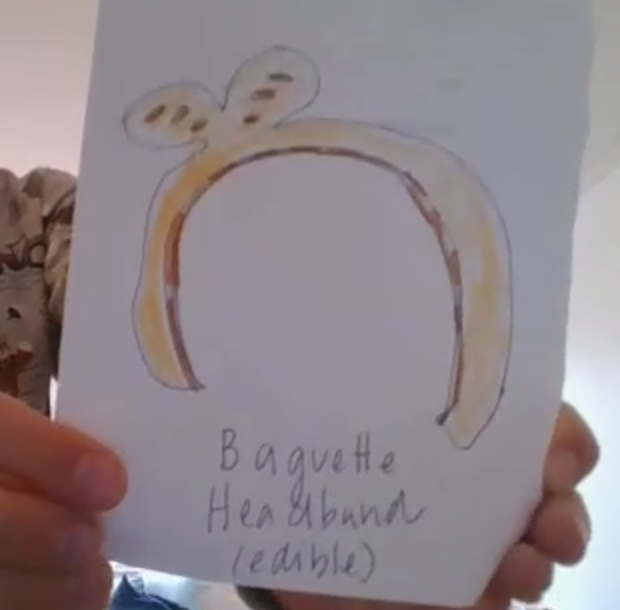 Baguette
Headband
(edible)